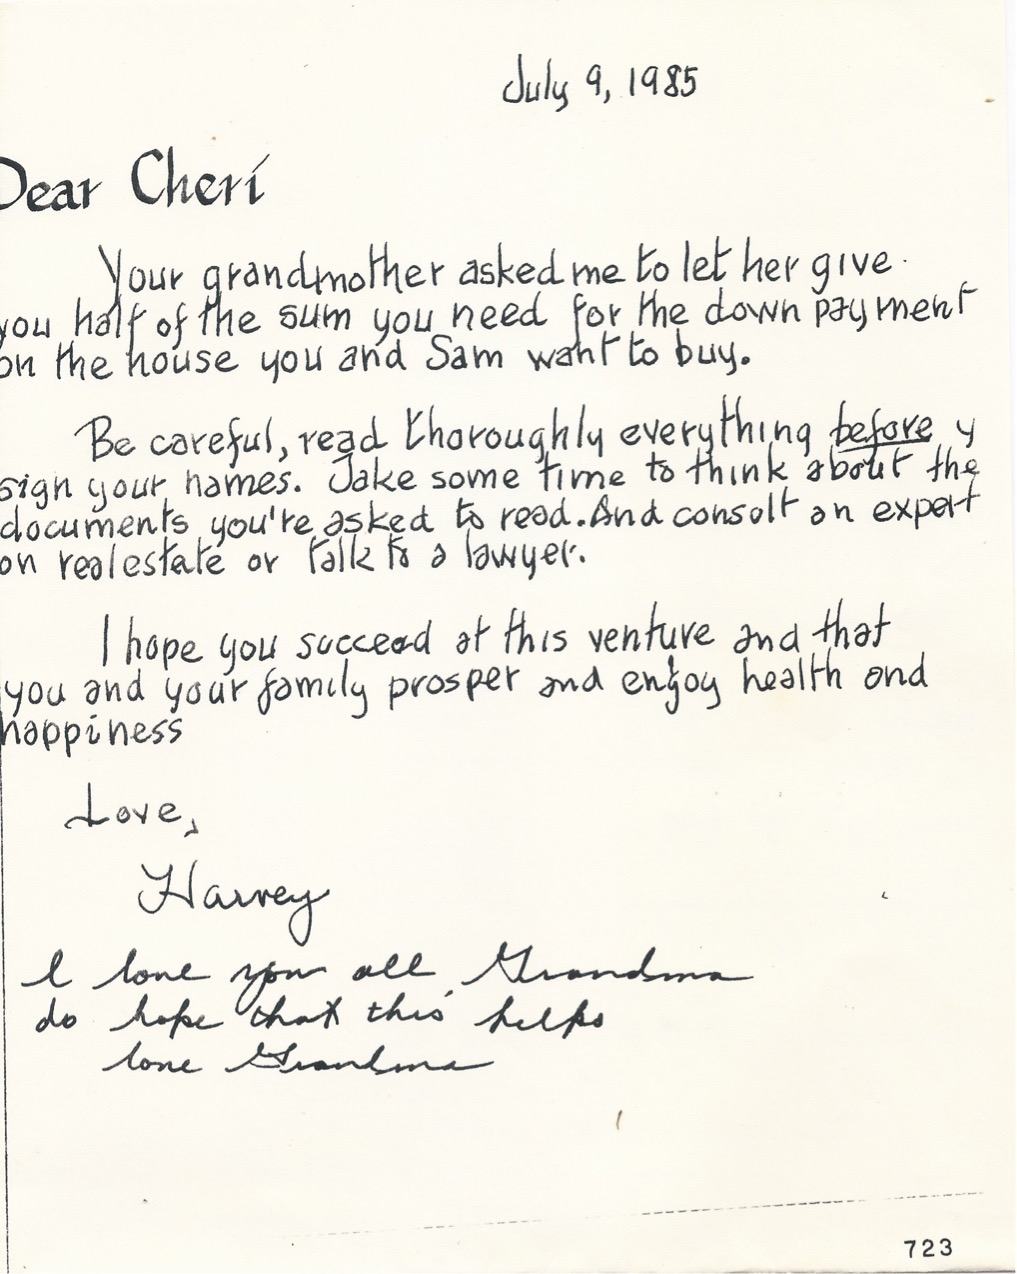 July 9, 1985
Dear Cheri
Your grandmother asked me to let her give
you half of the sum you need for the down payment
on the house you and Sam want to buy.
Be careful, read thoroughly everything before y
sign your names. Take some time to think about the
documents you're asked to read. And consolt an expert
on realestate or talk to a lawyer.
I hope you succeed at this venture and that
you and your family prosper and enjoy health and
happiness
Love,
Harvey
I love you all, Grandma
do hope that this helps
love Grandma
723